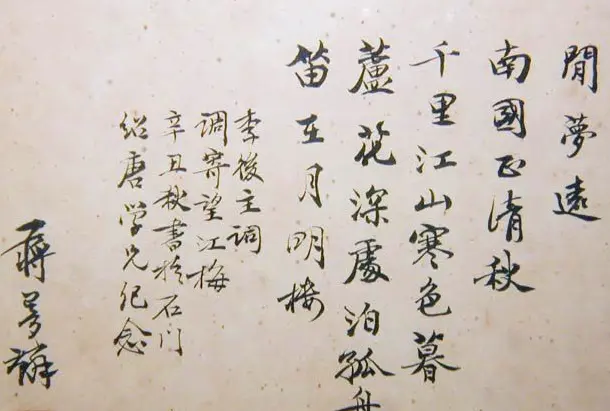 閒夢遠
南國正清秋
千里江山寒色暮
蘆花深處泊孤舟
笛在月明樓
李後主調
調寄望江梅
辛丑秋書於石门
紹唐学兄紀念
蔣夢麟